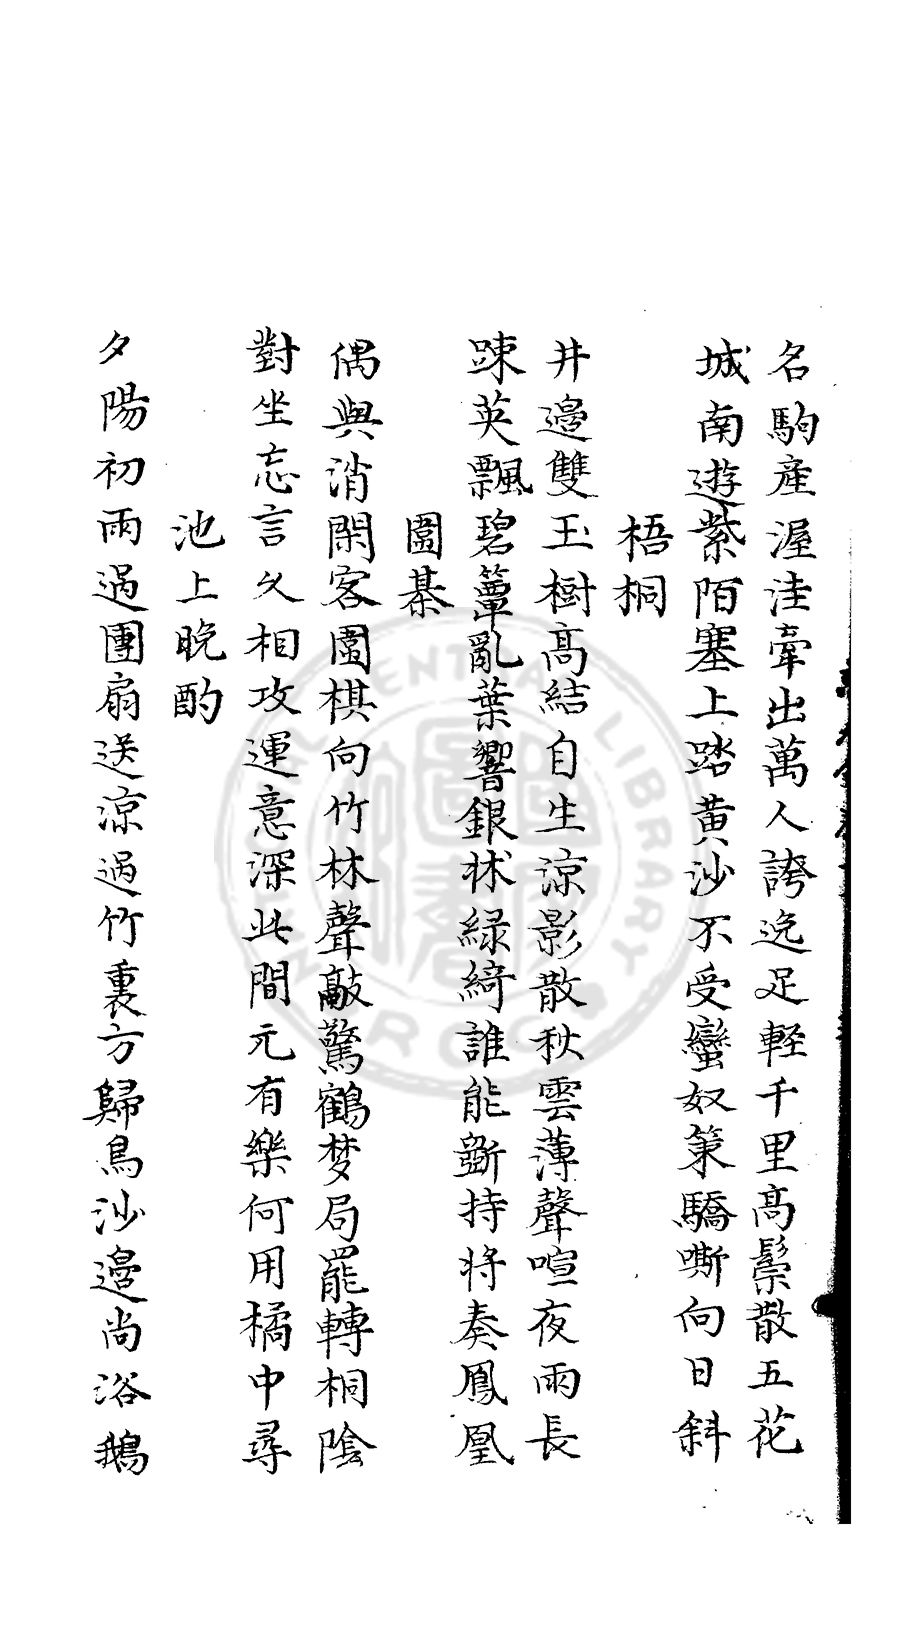 名駒產渥洼牽出萬人誇逸足輕千里高鬃散五花
城南遊紫陌塞上踏黃沙不受蠻奴策驕嘶向日斜
梧桐
井邊雙玉樹高結自生涼影散秋雲薄聲喧夜雨長
踈英飄碧簟亂葉響銀牀綠綺誰能斵持將奏鳳凰
圍棊
偶與消閑客圍棋向竹林聲敲驚鶴梦局罷轉桐陰
對坐忘言久相攻運意深此間元有樂何用橘中尋
池上晚酌
夕陽初雨過團扇送涼過竹裏方歸鳥沙邊尚浴鵝
CENTRAL LIBRARY
R.O.C.